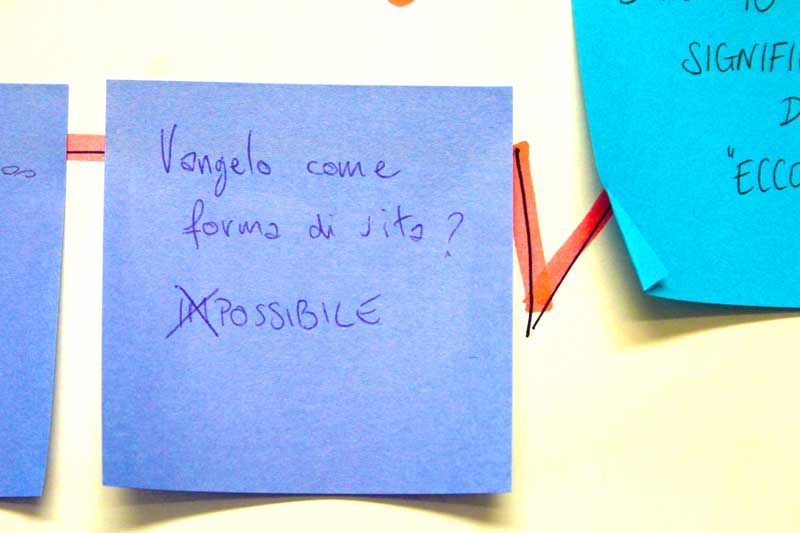 Vangelo come
forma di vita?
IMPOSSIBILE
SIGNIFI
D
"ECCO